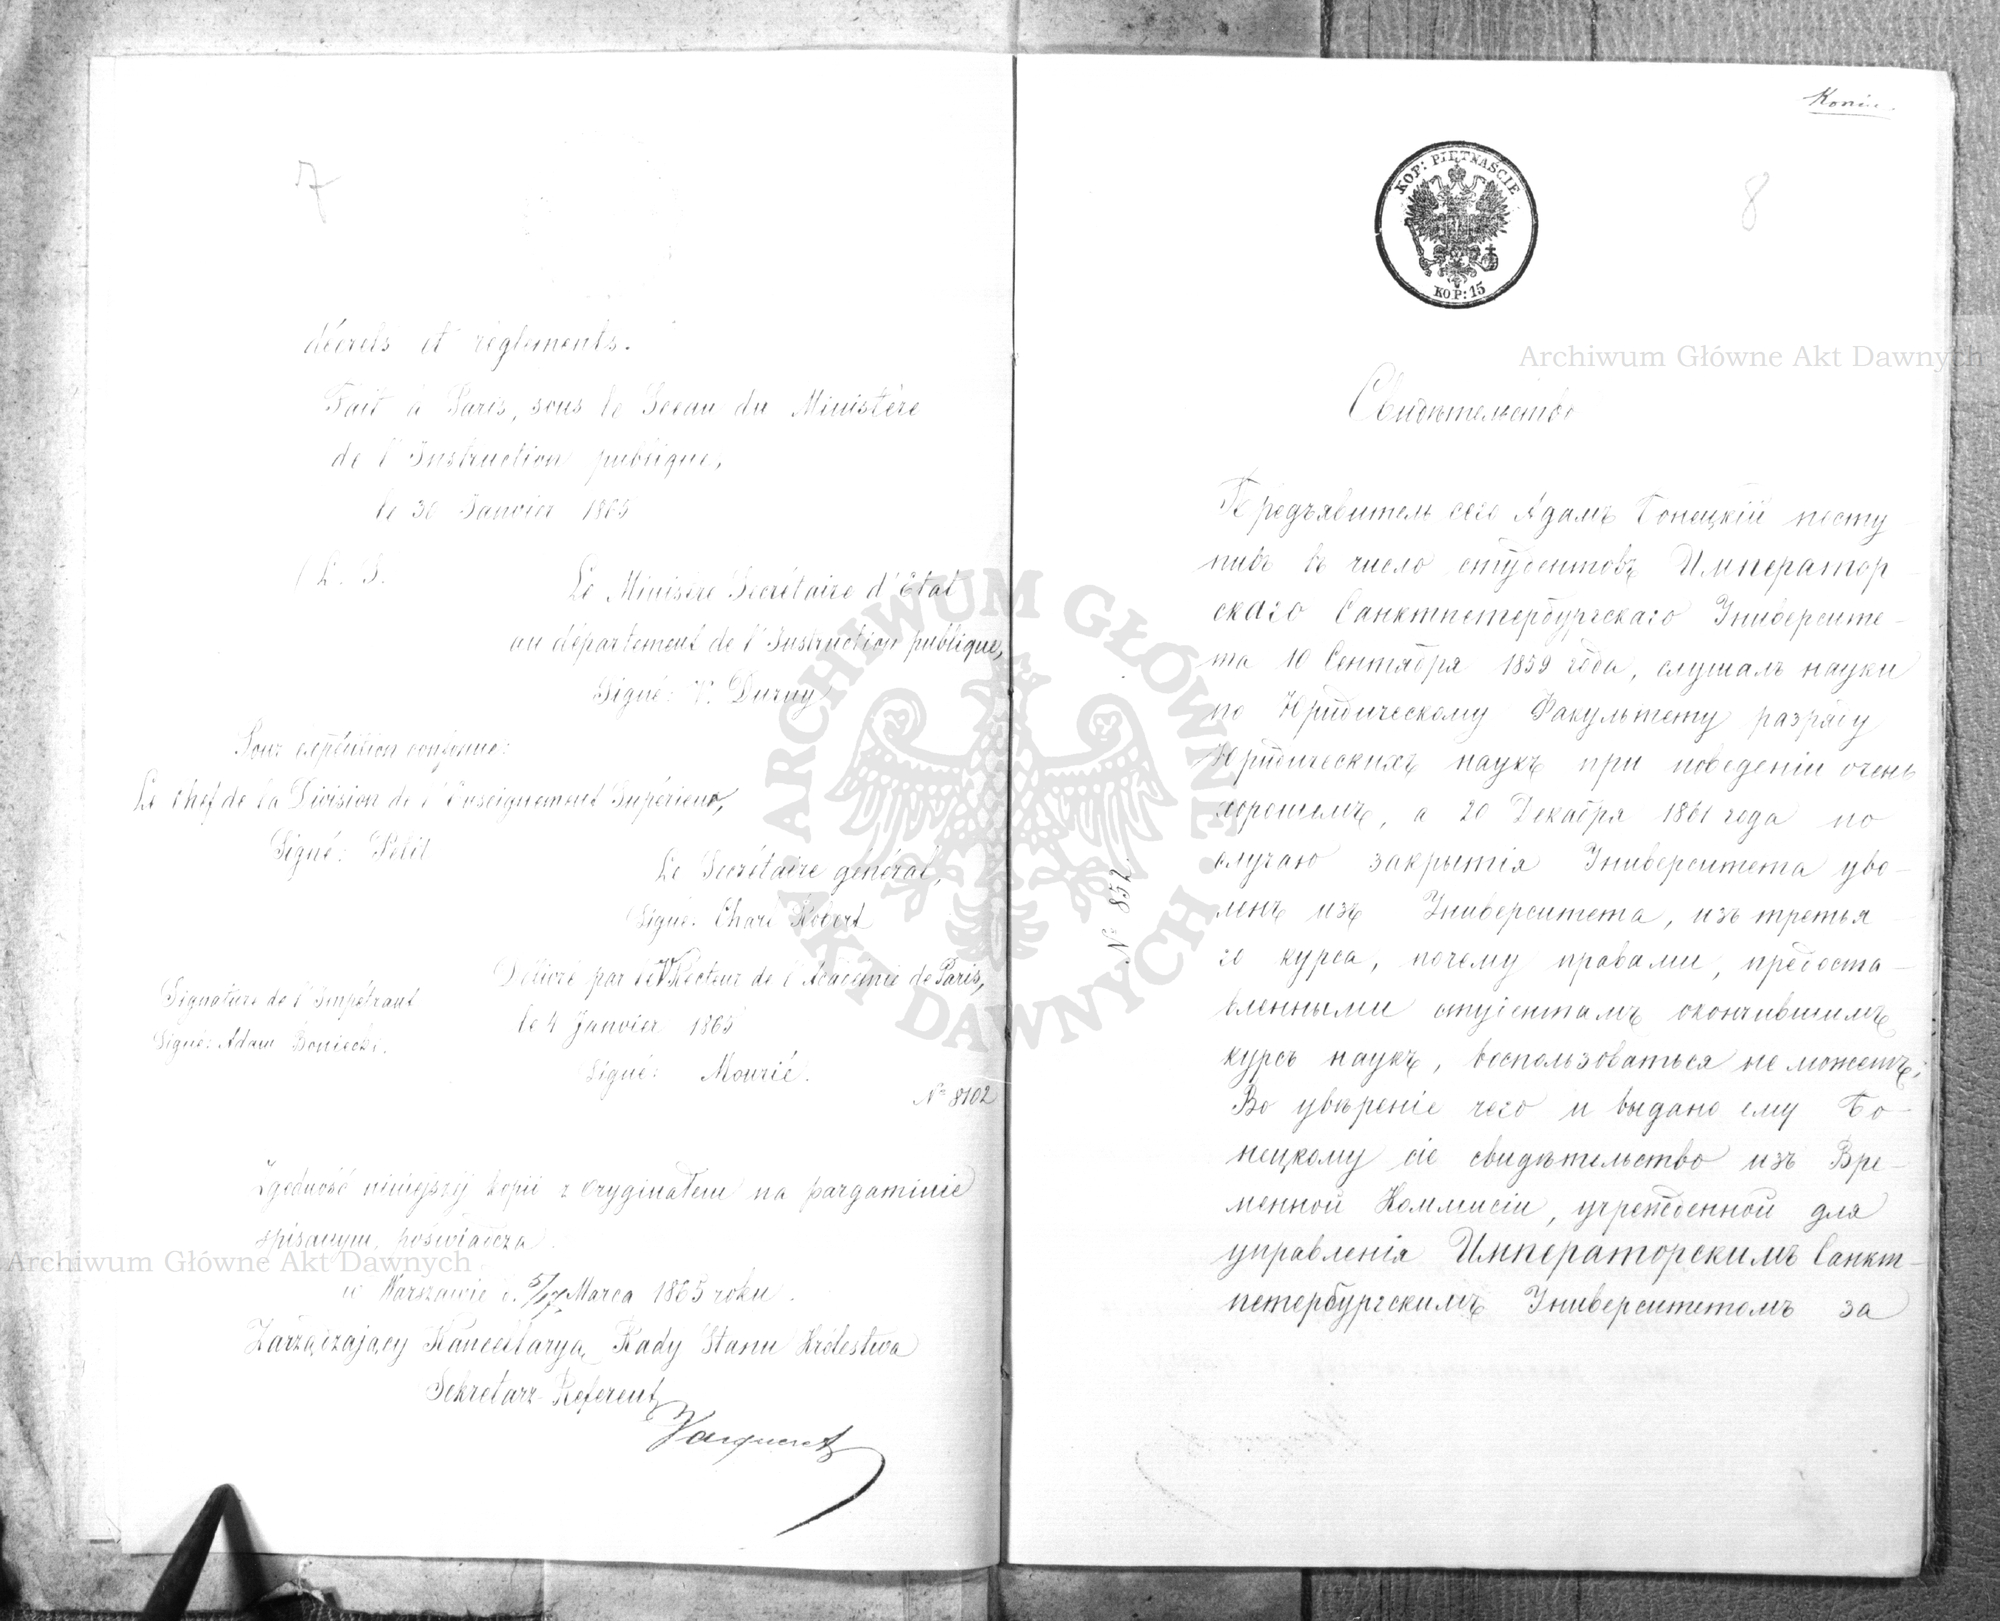 7
décrets et règlements.
Fait à Paris, sous le Sceau du Ministère
de l'Instruction publique,
le 30 Janvier 1865
(L. S.
Le Ministre Secrétaire d'État
au département de l'Instruction publique,
Signé: V. Duruy
Pour expédition conforme:
Le chef de la Division de l'Enseignement Supérieur,
Signé: Petit
Le Secrétaire général,
Signé: Charl Robert
Délivré par le Vice Recteur de l'Académie de Paris,
le 4 Janvier 1865
Signature de l'Impétrant
Signé: Adam Boniecki.
Signé: Mourié.
№ 8102
Zgodność niniejszej kopii z oryginałem na pargaminie
spisanym, poświadcza.
w Warszawie d. 5/17 Marca 1865 roku.
Zarządzający Kancellaryą Rady Stanu Królestwa
Sekretarz Referent
Копія.
KOP: PIĘTNAŚCIE
KOP: 15
8
Свидѣтельство
№ 852
Предъявитель сего Адамъ Бонецкій посту
пивъ въ число студентовъ Император
скаго Санктпетербургскаго Университе-
та 10 Сентября 1859 года, слушалъ науки
по Юридическому Факультету разряду
Юридическихъ наукъ при поведеніи очень
хорошемъ, а 20 Декабря 1861 года по
случаю закрытія Университета уво-
ленъ изъ Университета, изъ третья
го курса, почему правами, предоста-
вленными студентамъ окончившимъ
курсъ наукъ, воспользоваться не можетъ;
Во увѣреніе чего и выдано ему Бо-
нецкому сіе свидѣтельство изъ Вре-
менной Коммисіи, учрежденной для
управленія Императорскимъ Санкт-
петербургскимъ Университетомъ за
Archiwum Główne Akt Dawnych
Archiwum Główne Akt Dawnych
ARCHIWUM GŁÓWNE AKT DAWNYCH